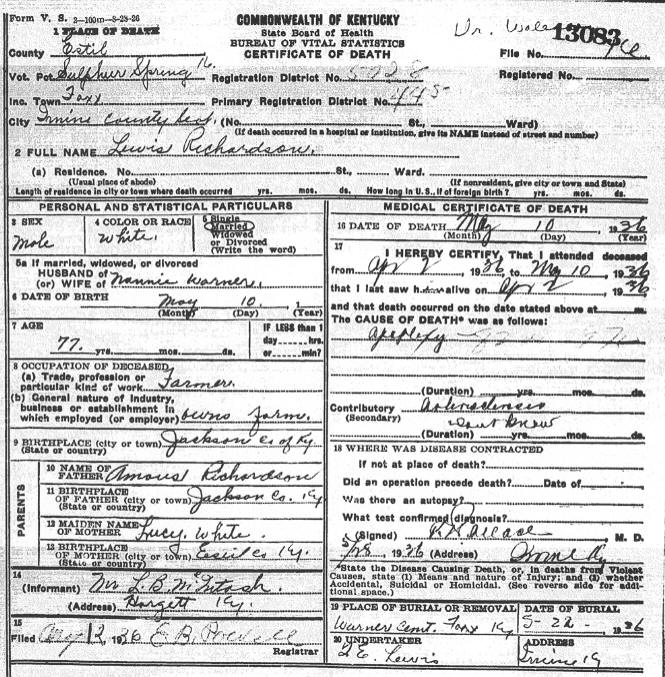 Form V. S. 2-100m-3-23-26
COMMONWEALTH OF KENTUCKY
State Board of Health
BUREAU OF VITAL STATISTICS
CERTIFICATE OF DEATH
13083
1 PLACE OF DEATH
County Estil
File No.
Vot. Pct Sulphur Spring
Registration District No.
Registered No.
Inc. Town Foxx
Primary Registration District No. 445
City Irvine County Seat (No. St., Ward)
(If death occurred in a hospital or institution, give its NAME instead of street and number)
2 FULL NAME Lewis Richardson.
(a) Residence. No. St., Ward.
(Usual place of abode) (If nonresident, give city or town and State)
Length of residence in city or town where death occurred yrs. mos. ds. How long in U.S., if of foreign birth? yrs. mos. ds.
PERSONAL AND STATISTICAL PARTICULARS
3 SEX
Male
4 COLOR OR RACE
White.
5 Single
Married
Widowed
or Divorced
(Write the word)
5a If married, widowed, or divorced
HUSBAND of
(or) WIFE of Nannie Warner.
6 DATE OF BIRTH May 10. 1
(Month) (Day) (Year)
7 AGE
77. yrs. mos. ds.
IF LESS than 1
day hrs.
or min?
8 OCCUPATION OF DECEASED
(a) Trade, profession or
particular kind of work Farmer.
(b) General nature of industry,
business or establishment in
which employed (or employer) owns farm.
9 BIRTHPLACE (city or town) Jackson Co of Ky.
(State or country)
PARENTS
10 NAME OF
FATHER Amous Richardson
11 BIRTHPLACE
OF FATHER (city or town) Jackson Co. Ky
(State or country)
12 MAIDEN NAME
OF MOTHER Lucy White.
13 BIRTHPLACE
OF MOTHER (city or town) Estil Co Ky.
(State or country)
14
(Informant) Mr L. B. McIntosh.
(Address) Hargett Ky.
15
Filed 12, 1936 E. B.
Registrar
MEDICAL CERTIFICATE OF DEATH
16 DATE OF DEATH May 10 1936
(Month) (Day) (Year)
17
I HEREBY CERTIFY, That I attended deceased
from Apr 2 1936 to May 10, 1936
that I last saw him alive on Apr 2 1936
and that death occurred on the date stated above at m.
The CAUSE OF DEATH* was as follows:
Apoplexy
(Duration) yrs. mos. ds.
Contributory Arteriosclerosis
(Secondary) dont know
(Duration) yrs. mos. ds.
18 WHERE WAS DISEASE CONTRACTED
If not at place of death?
Did an operation precede death? Date of
Was there an autopsy?
What test confirmed diagnosis?
(Signed) Wallace M. D.
1936 (Address) Irvine Ky
*State the Disease Causing Death, or, in deaths from Violent
Causes, state (1) Means and nature of Injury; and (2) whether
Accidental, Suicidal or Homicidal. (See reverse side for addi-
tional space.)
19 PLACE OF BURIAL OR REMOVAL
Warner Cemt. Foxx Ky
DATE OF BURIAL
5-22- 1936
20 UNDERTAKER
Lewis
ADDRESS
Irvine Ky